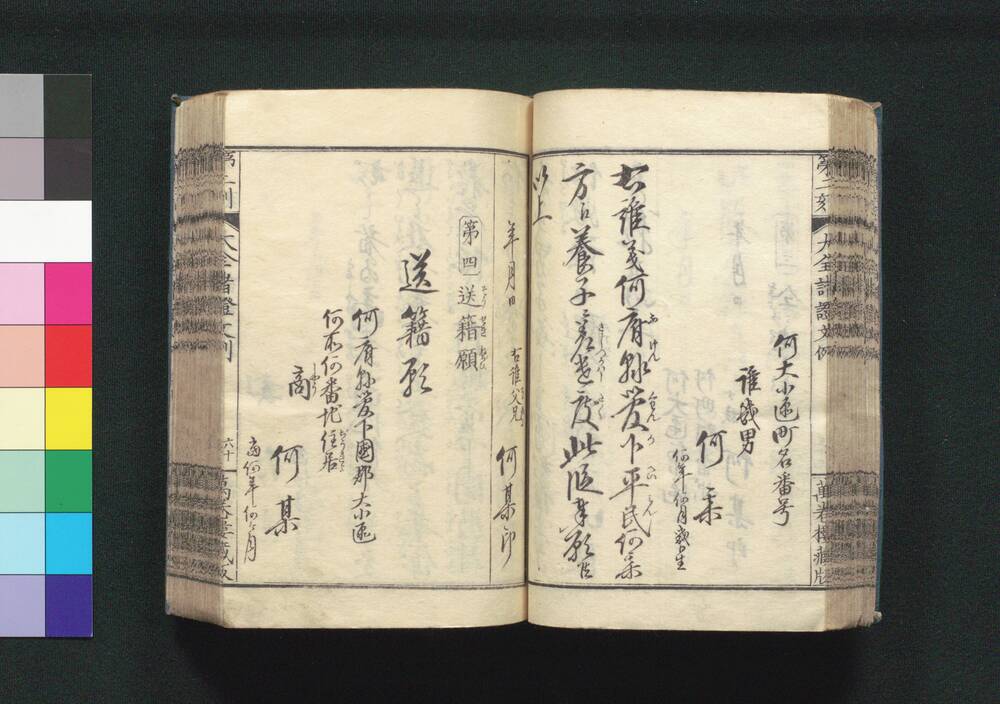 何大小區町名番号
誰幾男
何某
何年何月幾日生
右誰義何府縣管下平民何某
方江養子ニ差遣度此段奉願候
以上
年月日
右誰父兄
何某印
第四 送籍願
送籍願
何府縣管下國郡大小區
何所何番地住居
商
何某
當何年何ヶ月
六十
萬巻樓藏版
大全諸證文例